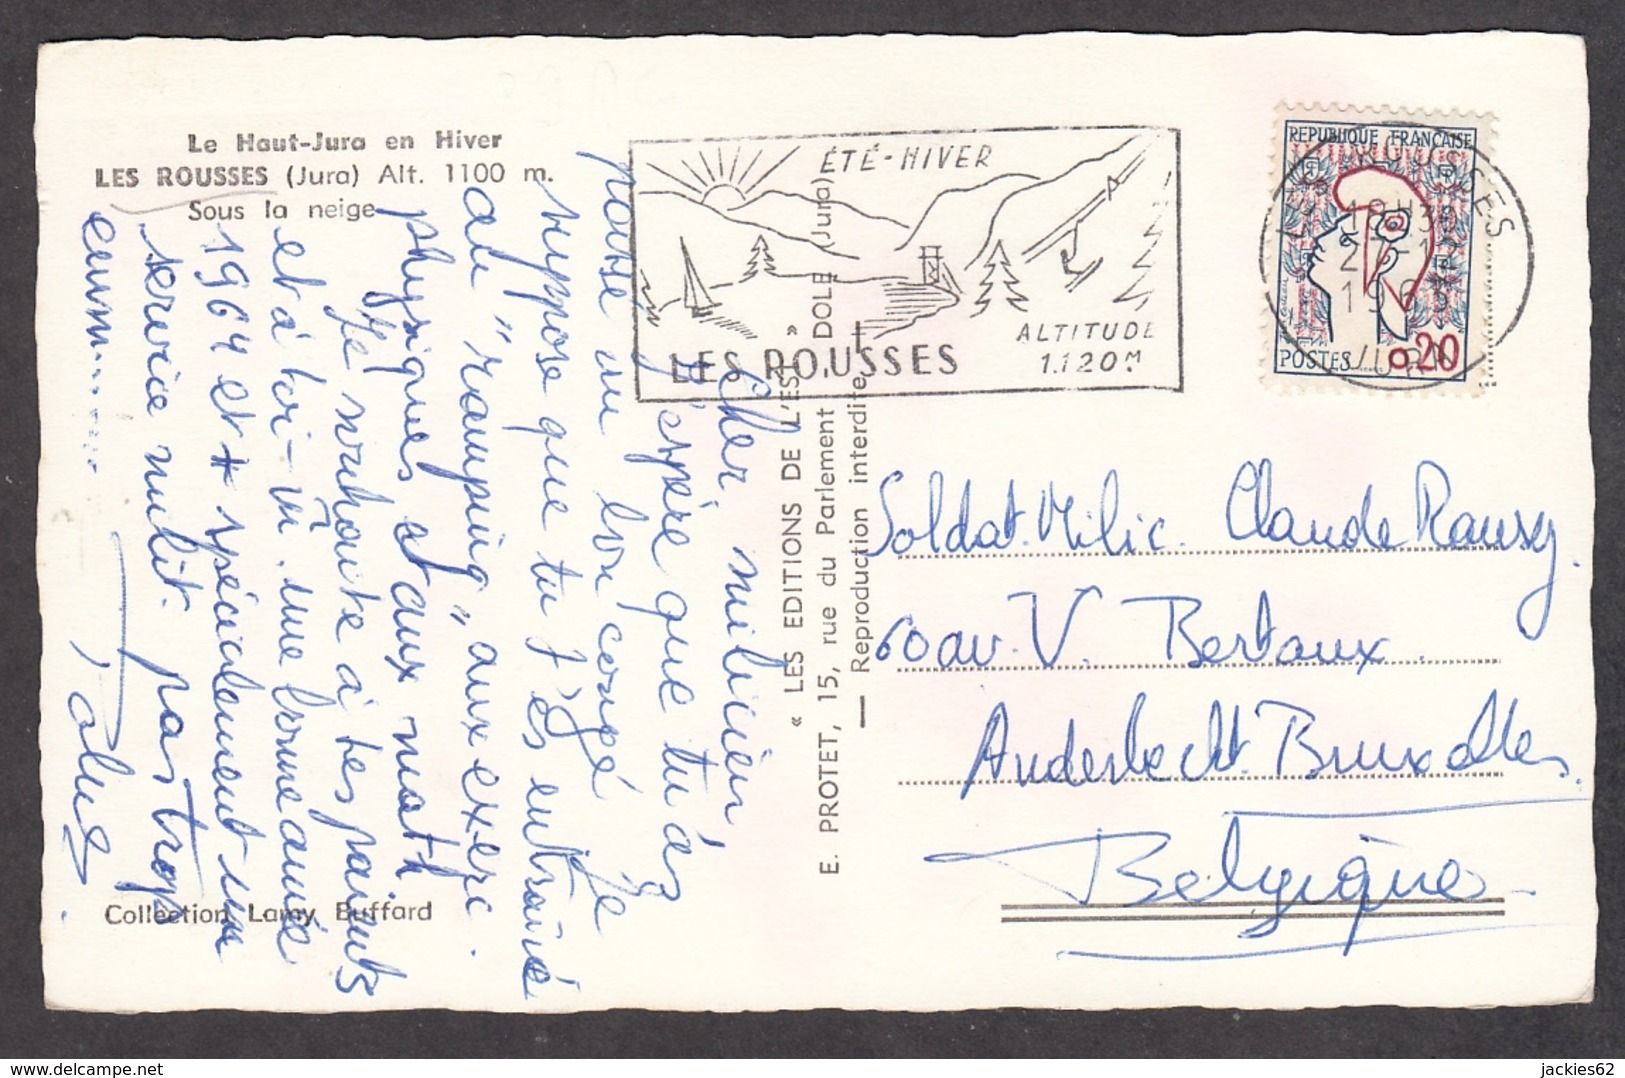 Le Haut-Jura en Hiver
LES ROUSSES (Jura) Alt. 1100 m.
Sous la neige
ÉTÉ-HIVER
ALTITUDE
1.120 M
LES ROUSSES
REPUBLIQUE FRANÇAISE
POSTES
0,20
LES ROUSSES
18H30
27-12
1963
JURA
Cher milicien,
J'espère que tu as
passé un bon congé. Je
suppose que tu t'es entraîné
au "ramping" aux exerc.
physiques et aux math.
Je souhaite à tes parents
et à toi-même une bonne année
1964 et spécialement un
service milit. pas trop
ennu........
« LES EDITIONS DE L'EST »
E. PROTET, 15, rue du Parlement - DOLE (Jura)
— Reproduction interdite
Soldat Milic. Claude Rausy
60 av. V. Bertaux
Anderlecht Bruxelles.
Belgique
Collection Lamy Buffard
jackies62